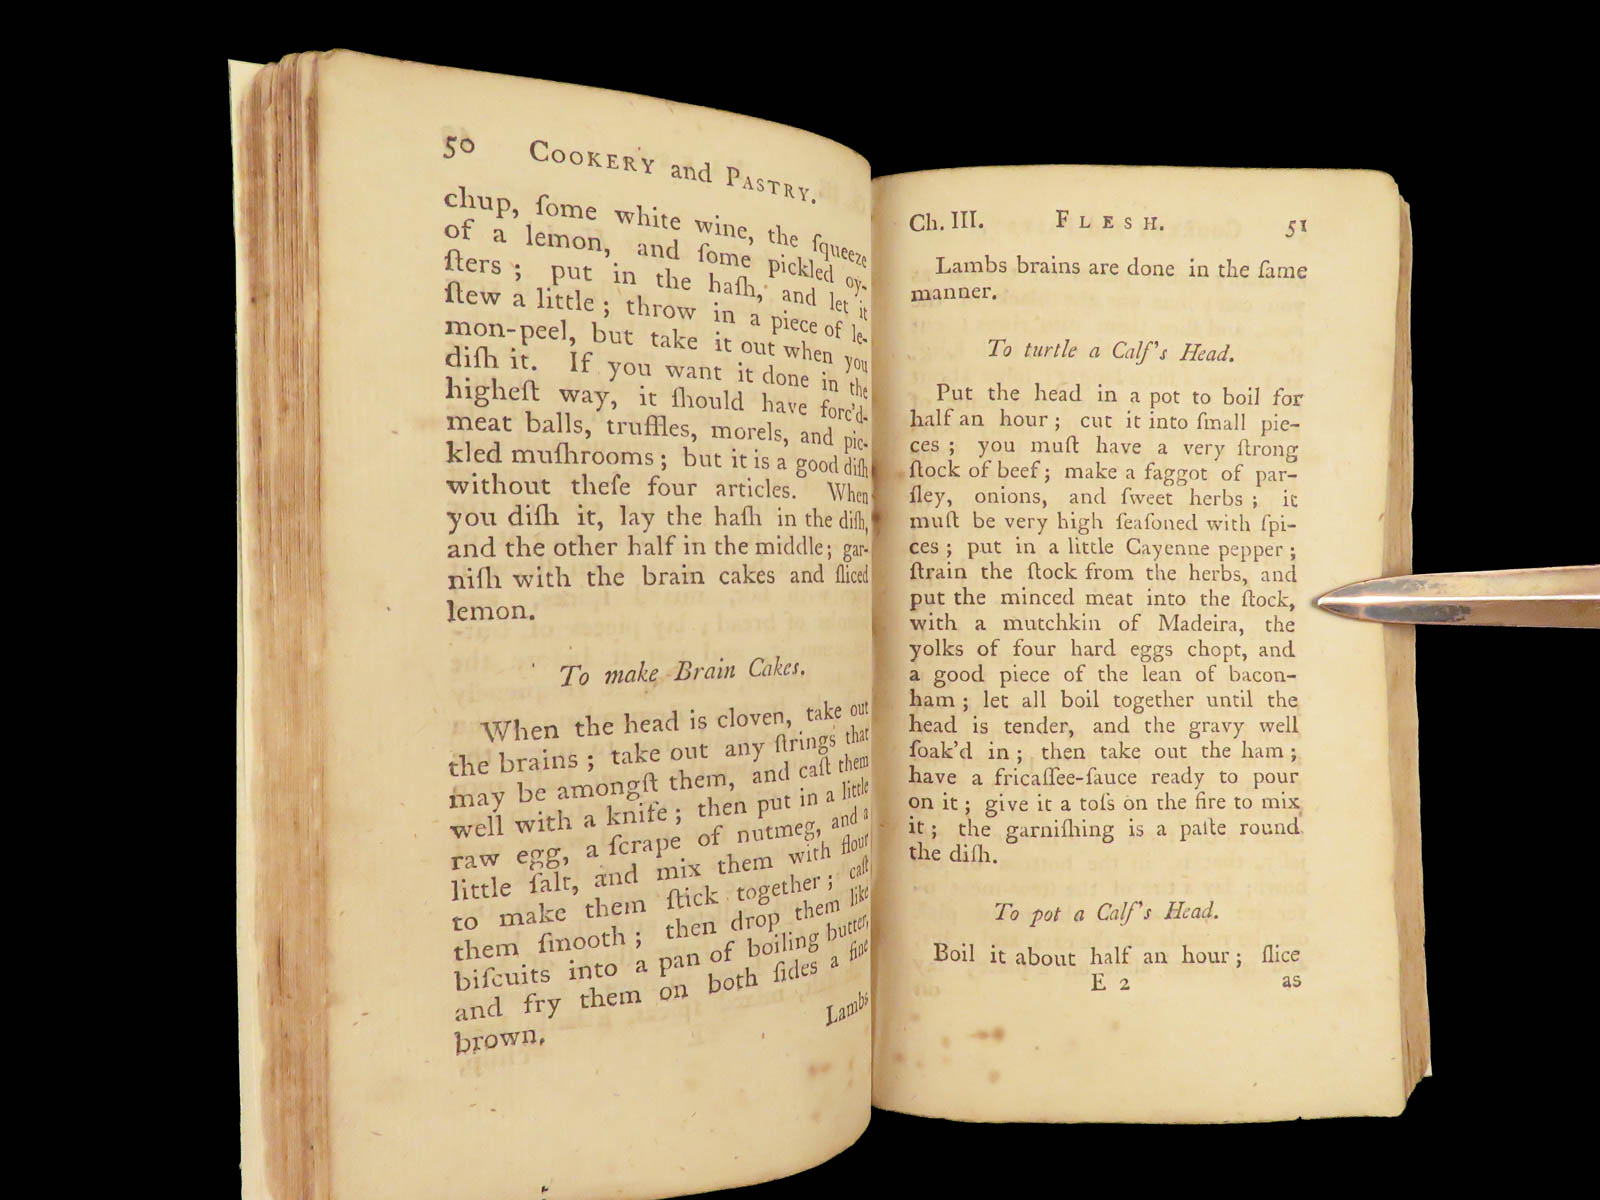 50 COOKERY and PASTRY.
chup, ſome white wine, the ſqueeze
of a lemon, and ſome pickled oy-
ſters ; put in the haſh, and let it
ſtew a little ; throw in a piece of le-
mon-peel, but take it out when you
diſh it. If you want it done in the
higheſt way, it ſhould have forc'd-
meat balls, truffles, morels, and pic-
kled muſhrooms ; but it is a good diſh
without theſe four articles. When
you diſh it, lay the haſh in the diſh,
and the other half in the middle ; gar-
niſh with the brain cakes and ſliced
lemon.
To make Brain Cakes.
When the head is cloven, take out
the brains ; take out any ſtrings that
may be amongſt them, and caſt them
well with a knife ; then put in a little
raw egg, a ſcrape of nutmeg, and a
little ſalt, and mix them with flour
to make them ſtick together ; caſt
them ſmooth ; then drop them like
biſcuits into a pan of boiling butter,
and fry them on both ſides a fine
brown.
Lambs
Ch. III. FLESH. 51
Lambs brains are done in the ſame
manner.
To turtle a Calf's Head.
Put the head in a pot to boil for
half an hour ; cut it into ſmall pie-
ces ; you muſt have a very ſtrong
ſtock of beef ; make a faggot of par-
ſley, onions, and ſweet herbs ; it
muſt be very high ſeaſoned with ſpi-
ces ; put in a little Cayenne pepper ;
ſtrain the ſtock from the herbs, and
put the minced meat into the ſtock,
with a mutchkin of Madeira, the
yolks of four hard eggs chopt, and
a good piece of the lean of bacon-
ham ; let all boil together until the
head is tender, and the gravy well
ſoak'd in ; then take out the ham ;
have a fricaſſee-ſauce ready to pour
on it ; give it a toſs on the fire to mix
it ; the garniſhing is a paſte round
the diſh.
To pot a Calf's Head.
Boil it about half an hour ; ſlice
E 2 as